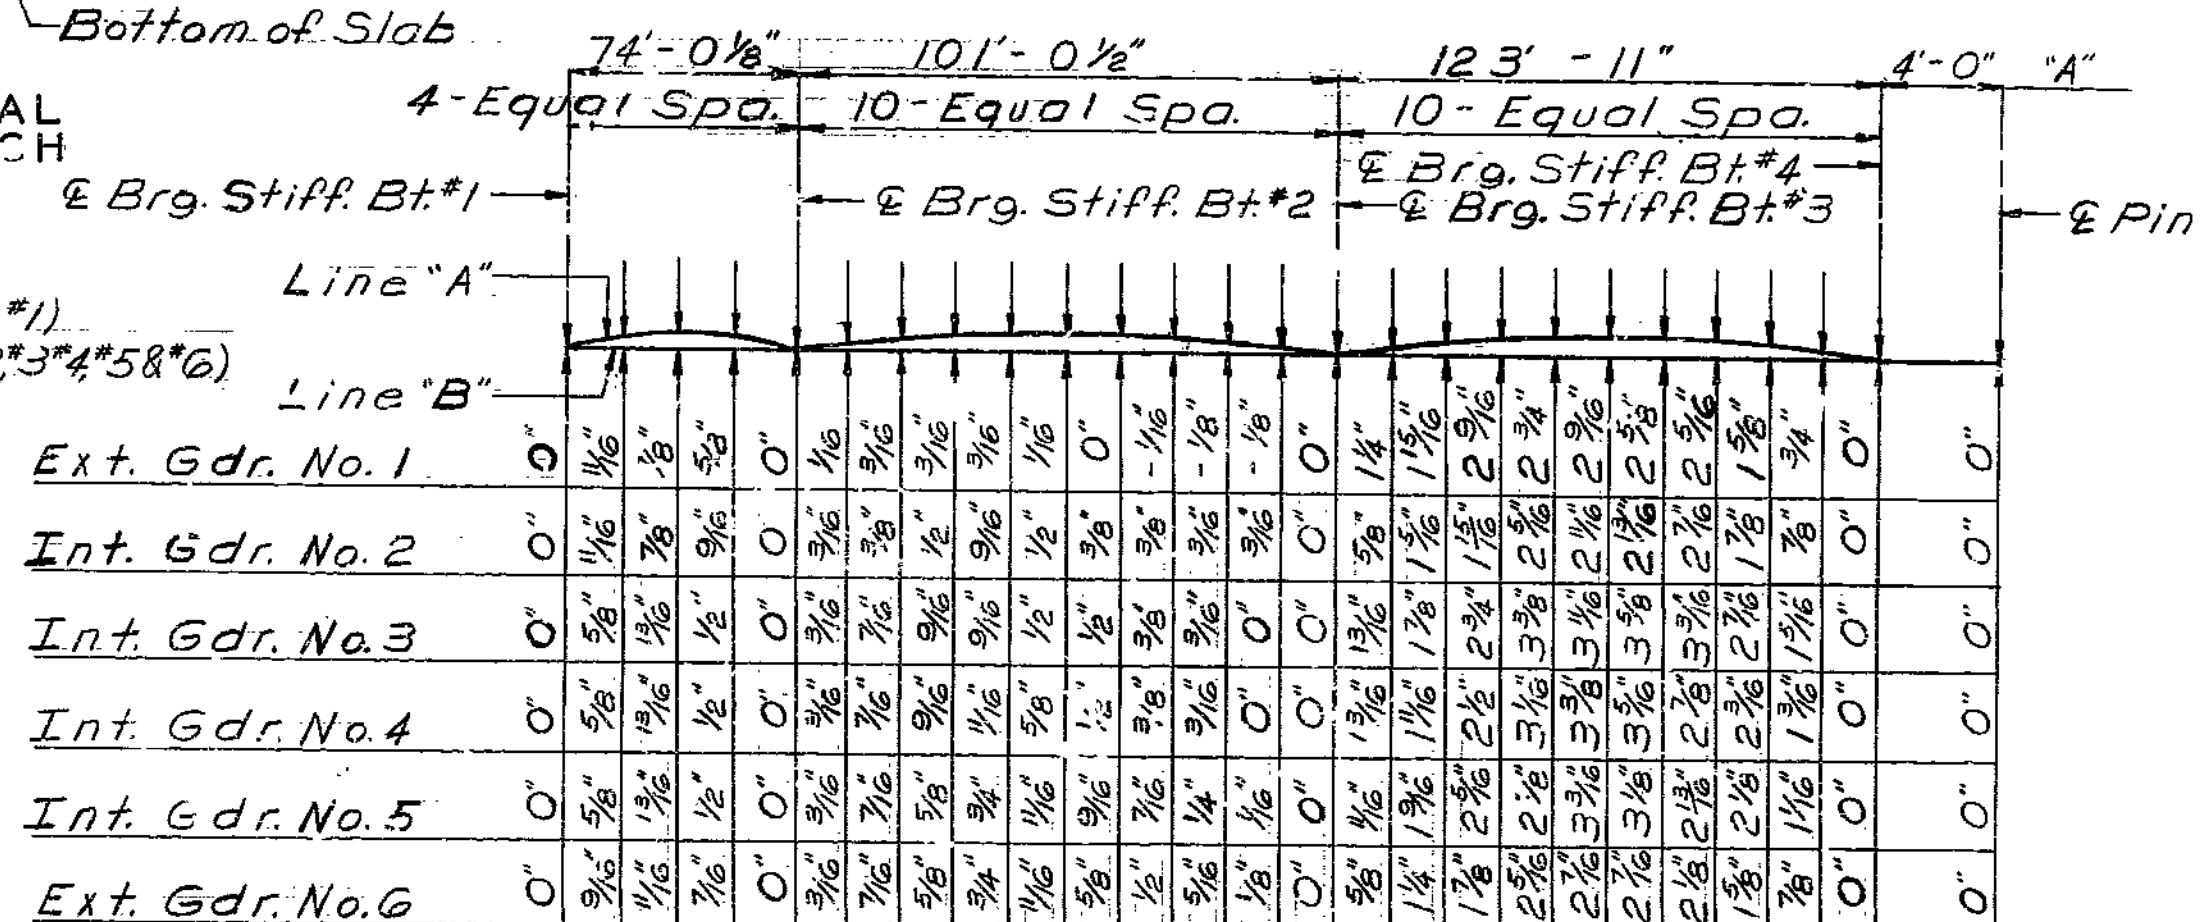 Bottom of Slab
74'-0 1/8" 101'-0 1/2" 123'-11" 4'-0" "A"
4-Equal Spa. 10-Equal Spa. 10-Equal Spa.
AL
CH
℄ Brg. Stiff. Bt.#4
℄ Brg. Stiff. Bt.#1 ℄ Brg. Stiff. Bt.#2 ℄ Brg. Stiff. Bt.#3 ℄ Pin
Line "A"
#1)
#3#4,#5&#6)
Line "B"
Ext. Gdr. No. 1 0" 11/16" 7/8" 5/8" 0" 1/16 3/16" 3/16" 3/16" 1/16" 0" -1/16" -1/8" -1/8" 0" 1 1/4" 1 15/16" 2 9/16" 2 3/4" 2 9/16" 2 5/8" 2 5/16" 1 5/8" 3/4" 0" 0"
Int. Gdr. No. 2 0" 11/16" 7/8" 9/16" 0 3/16" 3/8" 1/2" 9/16" 1/2" 3/8" 3/8" 3/16" 3/16" 0" 5/8" 1 5/16" 1 15/16" 2 5/16" 2 11/16" 2 13/16" 2 7/16" 1 7/8" 7/8" 0" 0"
Int. Gdr. No. 3 0" 5/8" 13/16" 1/2" 0" 3/16" 7/16" 9/16" 9/16" 1/2" 1/2" 3/8" 3/16" 0" 0" 13/16" 1 7/8" 2 3/4" 3 3/8" 3 11/16" 3 5/8" 3 3/16" 2 7/16" 1 5/16" 0" 0"
Int. Gdr. No. 4 0" 5/8" 13/16" 1/2" 0" 3/16" 7/16" 9/16" 11/16" 5/8" 1/2" 3/8" 3/16" 0" 0" 13/16" 1 11/16" 2 1/2" 3 1/16" 3 3/8" 3 5/16" 2 7/8" 2 3/16" 1 3/16" 0" 0"
Int. Gdr. No. 5 0" 5/8" 13/16" 1/2" 0" 3/16" 7/16" 5/8" 3/4" 11/16" 9/16" 7/16" 1/4" 1/16" 0" 11/16" 1 9/16" 2 5/16" 2 7/8" 3 3/16" 3 1/8" 2 13/16" 2 1/8" 1 1/16" 0" 0"
Ext. Gdr. No. 6 0" 9/16" 11/16" 7/16" 0" 3/16" 7/16" 5/8" 3/4" 11/16" 5/8" 1/2" 5/16" 1/8" 0" 5/8" 1 1/4" 1 7/8" 2 5/16" 2 7/16" 2 7/16" 2 1/8" 1 5/8" 7/8" 0" 0"